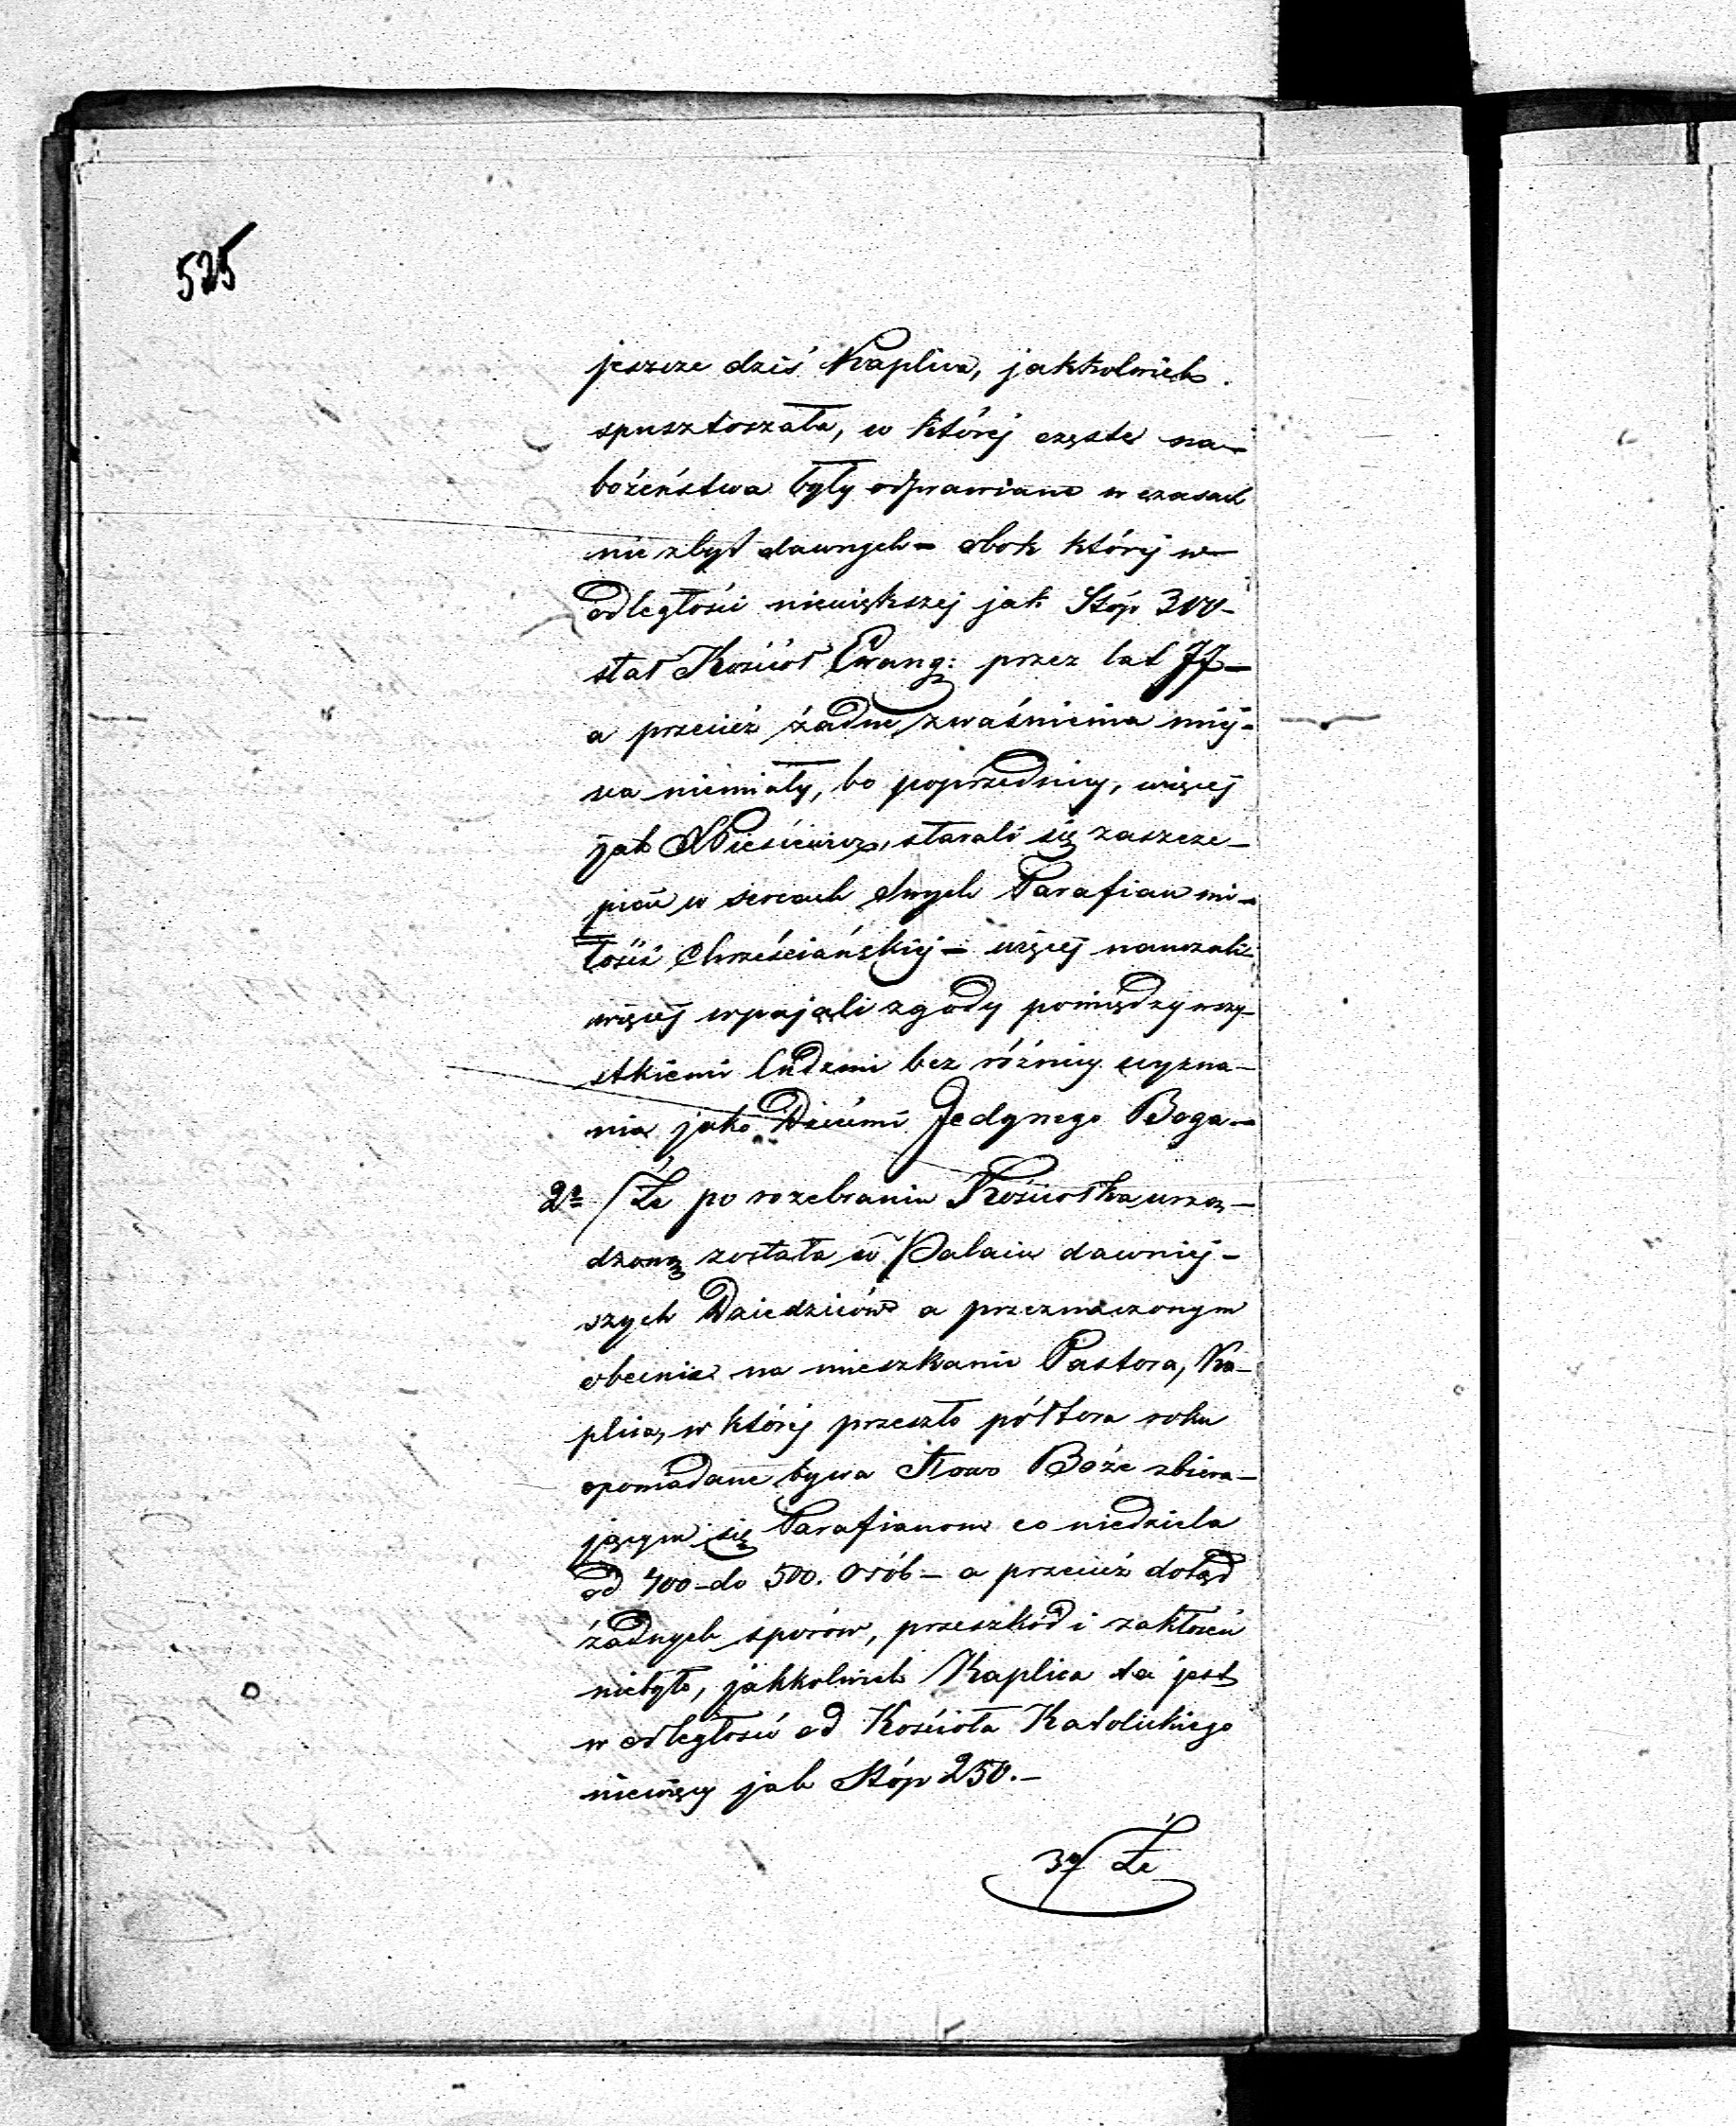 525
jeszcze dziś Kaplica, jakkolwiek
spusztoszała, w której częste na-
bożeństwa były odprawiane w czasach
nie zbyt dawnych - obok której w
odległości niewiększej jak Stóp 300-
stał Kościół Ewang: przez lat 77-
a przecież żadne zwaśnienia miej-
sca niemiały, bo poprzednicy, więcej
jak starali się zaszcze-
piać w sercach swych Parafian mi-
łość Chrześciańskiej - więcej nauczali
więcej wpajali zgody pomiędzy wszy-
stkiemi ludzmi bez różnicy wyzna-
nia jako Dziećmi Jedynego Boga.-
2e/ Że po rozebraniu Kościołka urzą-
dzoną została w Pałacu dawniej-
szych Dziedziców a przeznaczonym
obecnie na mieszkanie Pastora, Ka-
plica, w której przeszło półtora roku
opowiadane bywa Słowo Boże zbiera-
jącym się Parafianom co niedziela
od 400-do 500. osób - a przecież dotąd
żadnych sporów, przeszkód i zakłóceń
niebyło, jakkolwiek Kaplica ta jest
w odległości od Kościoła Katolickiego
niewięcy jak Stóp 250.-
3e/ Że